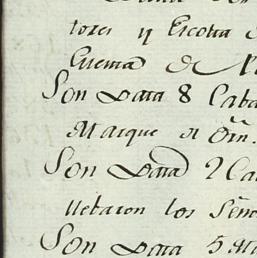 tores y Escolta
Guerra de
Son Para 8 Caba
Marque el
Son Para 2 Ca
llebaron los Seño
Son Para 5 Mu